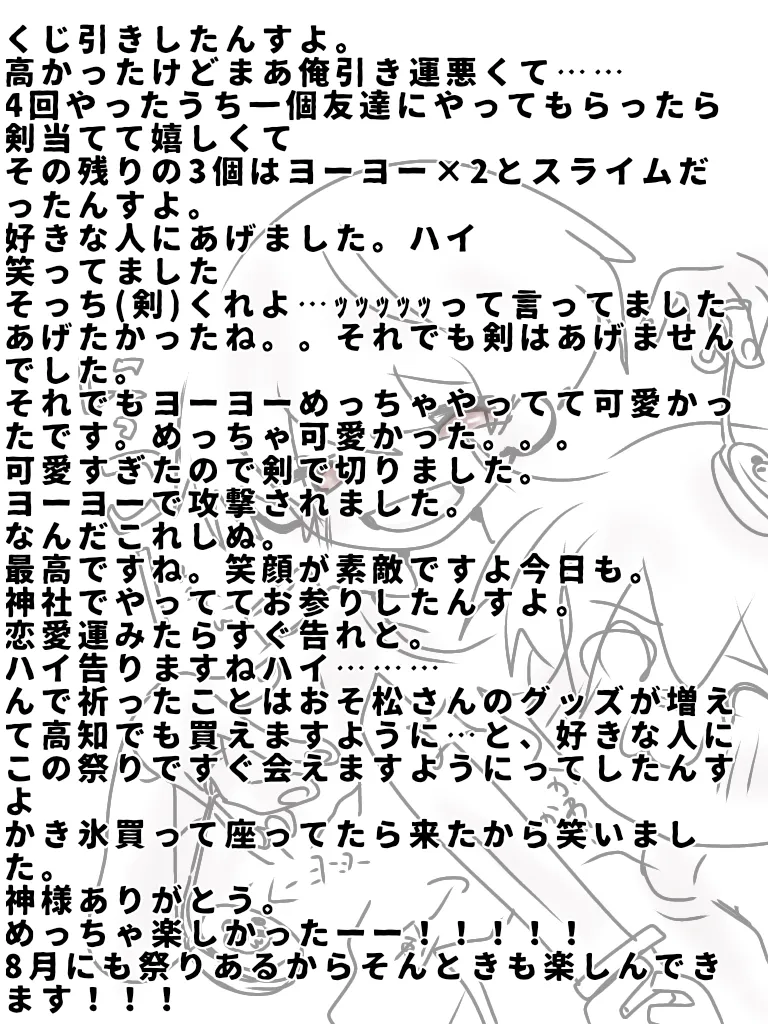 くじ引きしたんすよ。
高かったけどまあ俺引き運悪くて……
4回やったうち一個友達にやってもらったら
剣当てて嬉しくて
その残りの3個はヨーヨー×2とスライムだ
ったんすよ。
好きな人にあげました。ハイ
笑ってました
そっち(剣)くれよ…ｯｯｯｯｯって言ってました
あげたかったね。。それでも剣はあげません
でした。
それでもヨーヨーめっちゃやってて可愛かっ
たです。めっちゃ可愛かった。。。
可愛すぎたので剣で切りました。
ヨーヨーで攻撃されました。
なんだこれしぬ。
最高ですね。笑顔が素敵ですよ今日も。
神社でやっててお参りしたんすよ。
恋愛運みたらすぐ告れと。
ハイ告りますねハイ………
んで祈ったことはおそ松さんのグッズが増え
て高知でも買えますように…と、好きな人に
この祭りですぐ会えますようにってしたんす
よ
かき氷買って座ってたら来たから笑いまし
た。
神様ありがとう。
めっちゃ楽しかったーー！！！！！
8月にも祭りあるからそんときも楽しんでき
ます！！！
ヨーヨー